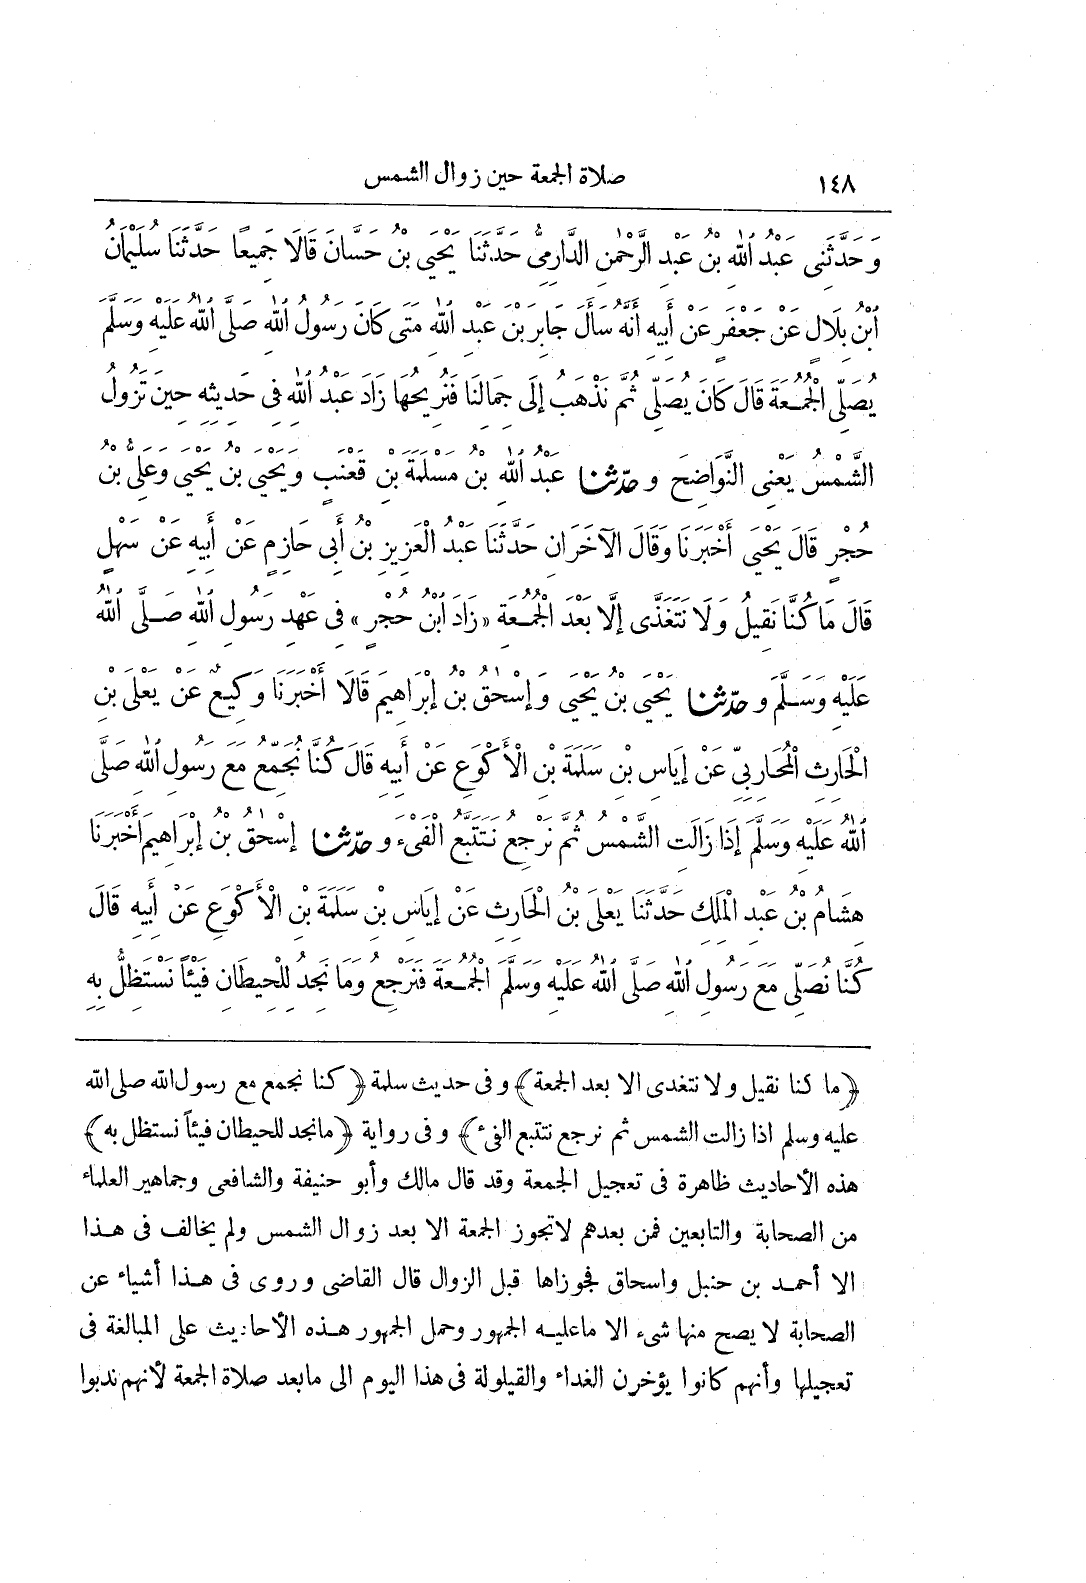 ١٤٨ صلاة الجمعة حين زوال الشمس
وَحَدَّثَنِى عَبْدُ اللهِ بْنُ عَبْدِ الرَّحْمٰنِ الدَّارِمِىُّ حَدَّثَنَا يَحْيَى بْنُ حَسَّانَ قَالَا جَمِيعًا حَدَّثَنَا سُلَيْمَانُ
ابْنُ بِلَالٍ عَنْ جَعْفَرٍ عَنْ أَبِيهِ أَنَّهُ سَأَلَ جَابِرَ بْنَ عَبْدِ اللهِ مَتَى كَانَ رَسُولُ اللهِ صَلَّى اللهُ عَلَيْهِ وَسَلَّمَ
يُصَلِّى الْجُمُعَةَ قَالَ كَانَ يُصَلِّى ثُمَّ نَذْهَبُ إِلَى جِمَالِنَا فَنُرِيحُهَا زَادَ عَبْدُ اللهِ فِى حَدِيثِهِ حِينَ تَزُولُ
الشَّمْسُ يَعْنِى النَّوَاضِحَ و حدّثنا عَبْدُ اللهِ بْنُ مَسْلَمَةَ بْنِ قَعْنَبٍ وَيَحْيَى بْنُ يَحْيَى وَعَلِىُّ بْنُ
حُجْرٍ قَالَ يَحْيَى أَخْبَرَنَا وَقَالَ الْآخَرَانِ حَدَّثَنَا عَبْدُ الْعَزِيزِ بْنُ أَبِى حَازِمٍ عَنْ أَبِيهِ عَنْ سَهْلٍ
قَالَ مَا كُنَّا نَقِيلُ وَلَا نَتَغَذَّى إِلَّا بَعْدَ الْجُمُعَةِ «زَادَ ابْنُ حُجْرٍ» فِى عَهْدِ رَسُولِ اللهِ صَلَّى اللهُ
عَلَيْهِ وَسَلَّمَ و حدّثنا يَحْيَى بْنُ يَحْيَى وَإِسْحٰقُ بْنُ إِبْرَاهِيمَ قَالَا أَخْبَرَنَا وَكِيعٌ عَنْ يَعْلَى بْنِ
الْحَارِثِ الْمُحَارِبِىِّ عَنْ إِيَاسِ بْنِ سَلَمَةَ بْنِ الْأَكْوَعِ عَنْ أَبِيهِ قَالَ كُنَّا نُجَمِّعُ مَعَ رَسُولِ اللهِ صَلَّى
اللهُ عَلَيْهِ وَسَلَّمَ إِذَا زَالَتِ الشَّمْسُ ثُمَّ نَرْجِعُ نَتَتَبَّعُ الْفَىْءَ و حدّثنا إِسْحٰقُ بْنُ إِبْرَاهِيمَ أَخْبَرَنَا
هِشَامُ بْنُ عَبْدِ الْمَلِكِ حَدَّثَنَا يَعْلَى بْنُ الْحَارِثِ عَنْ إِيَاسِ بْنِ سَلَمَةَ بْنِ الْأَكْوَعِ عَنْ أَبِيهِ قَالَ
كُنَّا نُصَلِّى مَعَ رَسُولِ اللهِ صَلَّى اللهُ عَلَيْهِ وَسَلَّمَ الْجُمُعَةَ فَنَرْجِعُ وَمَا نَجِدُ لِلْحِيطَانِ فَيْئًا نَسْتَظِلُّ بِهِ
﴿ما كنا نقيل ولا نتغدى الا بعد الجمعة﴾ وفى حديث سلمة ﴿كنا نجمع مع رسول الله صلى الله
عليه وسلم اذا زالت الشمس ثم نرجع نتتبع الفىء﴾ وفى رواية ﴿مانجد للحيطان فيئاً نستظل به﴾
هذه الأحاديث ظاهرة فى تعجيل الجمعة وقد قال مالك وأبو حنيفة والشافعى وجماهير العلماء
من الصحابة والتابعين فمن بعدهم لاتجوز الجمعة الا بعد زوال الشمس ولم يخالف فى هـذا
الا أحمـد بن حنبل واسحاق فجوزاها قبل الزوال قال القاضى وروى فى هـذا أشياء عن
الصحابة لا يصح منها شىء الا ماعليـه الجمهور وحمل الجمهور هـذه الأحاديث على المبالغة فى
تعجيلها وأنهم كانوا يؤخرن الغداء والقيلولة فى هذا اليوم الى مابعد صلاة الجمعة لأنهم ندبوا